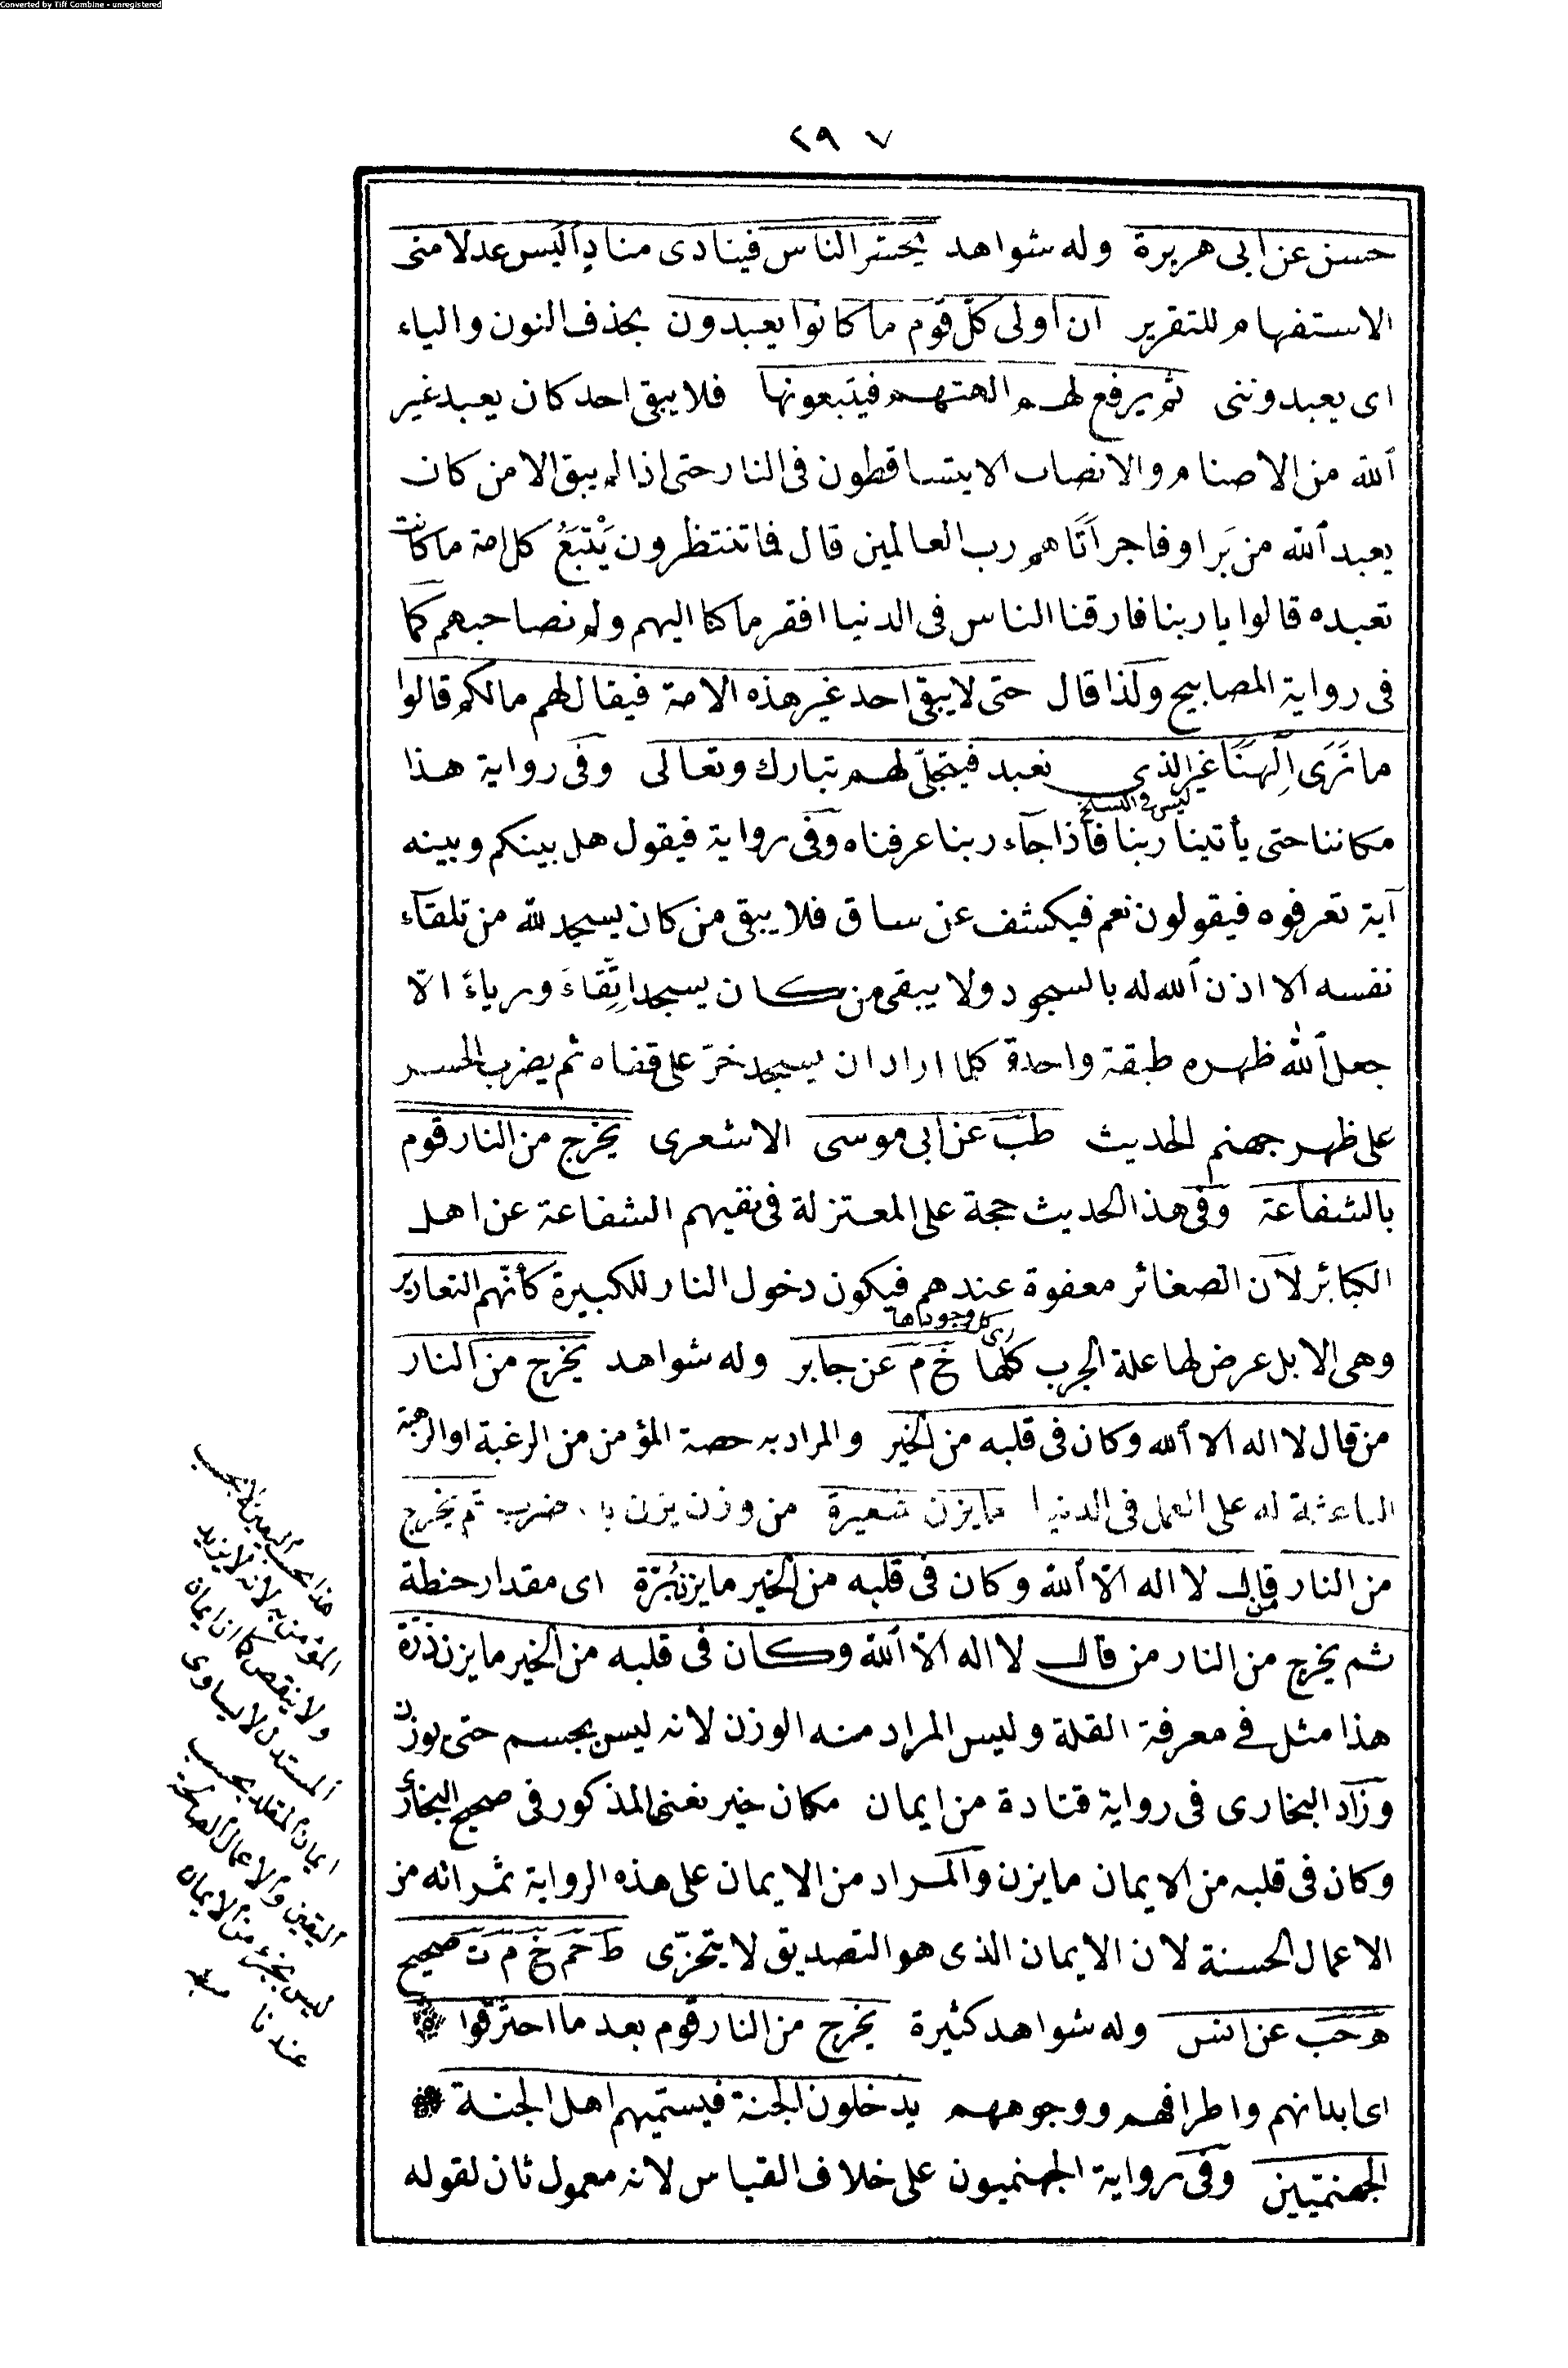 Converted by Tiff Combine - unregistered
٢٩٧
حسن عن ابى هريرة وله شواهد يحشر الناس فينادى مناد أليس عدلا منى
الاستفهام للتقرير ان اولى كلّ قوم ما كانوا يعبدون بحذف النون والياء
اى يعبدوننى ثم يرفع لهم الهتهم فيتبعونها فلا يبقى احد كان يعبد غير
الله من الاصنام والانصاب الا يتساقطون فى النار حتى اذا لم يبق الا من كان
يعبد الله من بَر او فاجر اَتَاهم رب العالمين قال فما تنتظرون يَتْبَعُ كل امة ما كانت
تعبده قالوا يا ربنا فارقنا الناس فى الدنيا افقر ما كنا اليهم ولم نصاحبهم كما
فى رواية المصابيح ولذا قال حتى لا يبقى احد غير هذه الامة فيقال لهم مالكم قالوا
ما نَرَى اِلٰهَنَا غير الذى نعبد فيتجلّى لهم تبارك وتعالى وفى رواية هذا
ليس فى النسخ
مكاننا حتى يأتينا ربنا فاذا جآء ربنا عرفناه وفى رواية فيقول هل بينكم وبينه
آية تعرفوه فيقولون نعم فيكشف عن ساق فلا يبقى من كان يسجد لله من تلقآء
نفسه الا اذن الله له بالسجود ولا يبقى من كان يسجد اتِّقاءَ ورياءً الّا
جعل الله ظهره طبقة واحدة كلما اراد ان يسجد خرّ على قفاه ثم يضرب الجسر
على ظهر جهنم الحديث طب عن ابى موسى الاشعرى يخرج من النار قوم
بالشفاعة وفى هذا الحديث حجة على المعتزلة فى نفيهم الشفاعة عن اهل
الكبائر لان الصغائر معفوة عندهم فيكون دخول النار للكبيرة كأنّهم التعارير
اى كل وجوداها
وهى الابل عرض لها علة الجرب كلها خ م عن جابر وله شواهد يخرج من النار
من قال لا اله الا الله وكان فى قلبه من الخير والمراد به حصة المؤمن من الرغبة او الرهبة
الباعثة له على العمل فى الدنيا ما يزن شعيرة من وزن يزن باب ضرب ثم يخرج
من النار من قال لا اله الّا الله وكان فى قلبه من الخير ما يزن بُرّة اى مقدار حنطة
ثم يخرج من النار من قال لا اله الّا الله وكان فى قلبه من الخير ما يزن ذرّة
هذا مثل فى معرفة القلة وليس المراد منه الوزن لانه ليس بجسم حتى يوزن
وزاد البخارى فى رواية قتادة من ايمان مكان خير نعنى المذكور فى صحيح البخارى
وكان فى قلبه من الايمان ما يزن والمراد من الايمان على هذه الرواية ثمراته من
الاعمال الحسنة لان الايمان الذى هو التصديق لا يتجزّى ط حم خ م ت صحيح
ه حب عن انس وله شواهد كثيرة يخرج من النار قوم بعد ما احترقوا
اى ابدانهم واطرافهم ووجوههم يدخلون الجنة فيسمّيهم اهل الجنة
الجهنّميّين وفى رواية الجهنميون على خلاف القياس لانه معمول ثان لقوله
هذا بحسب
المؤمن به لانه لا يزيد
ولا ينقص كما ان ايمان
المستدل لا يساوى
ايمان المقلد بحسب
اليقين والاعمال الصالحة
ليس بجزء من الايمان
عندنا